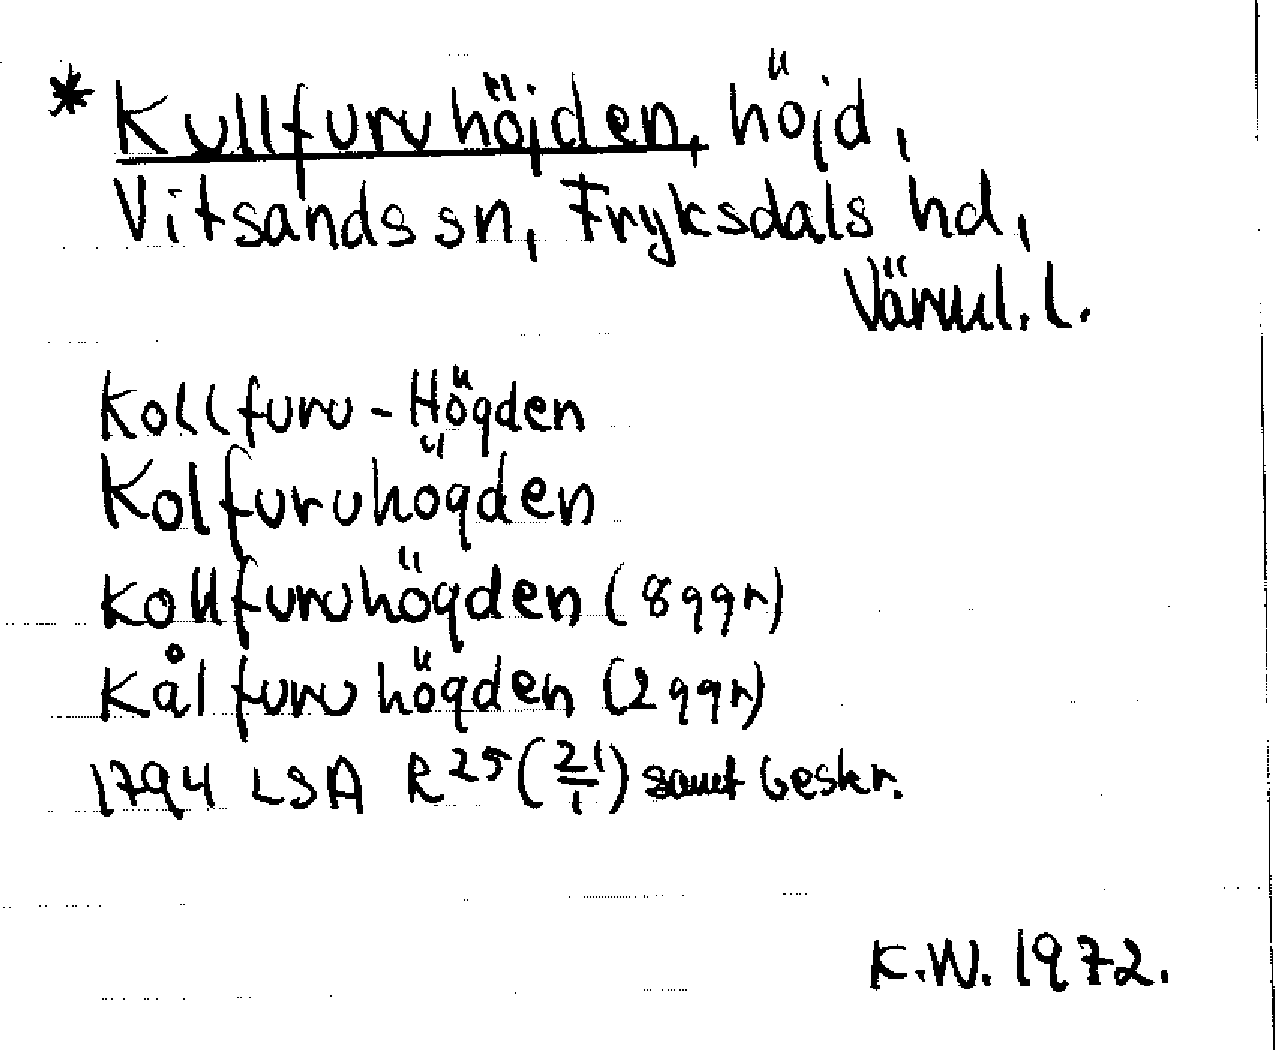 * Kullfuruhöjden, höjd,
Vitsands sn, Fryksdals hd,
Värml. l.
Kollfuru-Högden
Kolfuruhögden
Kollfuruhögden (8 ggr)
Kålfuruhögden (2 ggr)
1794 LSA R25 (21/1) samt beskr.
K.W. 1972.